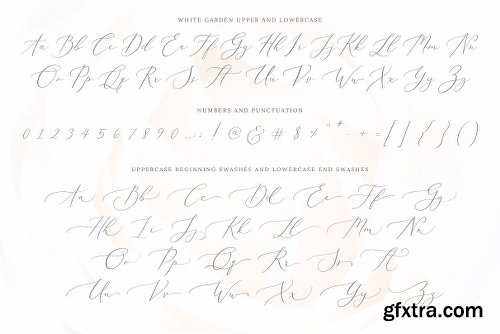 WHITE GARDEN UPPER AND LOWERCASE
Aa Bb Cc Dd Ee Ff Gg Hh Ii Jj Kk Ll Mm Nn
Oo Pp Qq Rr Ss Tt Uu Vv Ww Xx Yy Zz
NUMBERS AND PUNCTUATION
0 1 2 3 4 5 6 7 8 9 0 . , : ; ! @ & # $ + " * - + = [ ] { } ( )
UPPERCASE BEGINNING SWASHES AND LOWERCASE END SWASHES
Aa Bb Cc Dd Ee Ff Gg
Hh Ii Jj Kk Ll Mm Nn
Oo Pp Qq Rr Ss Tt
Uu Vv Ww Xx Yy Zz
gfxtra.com